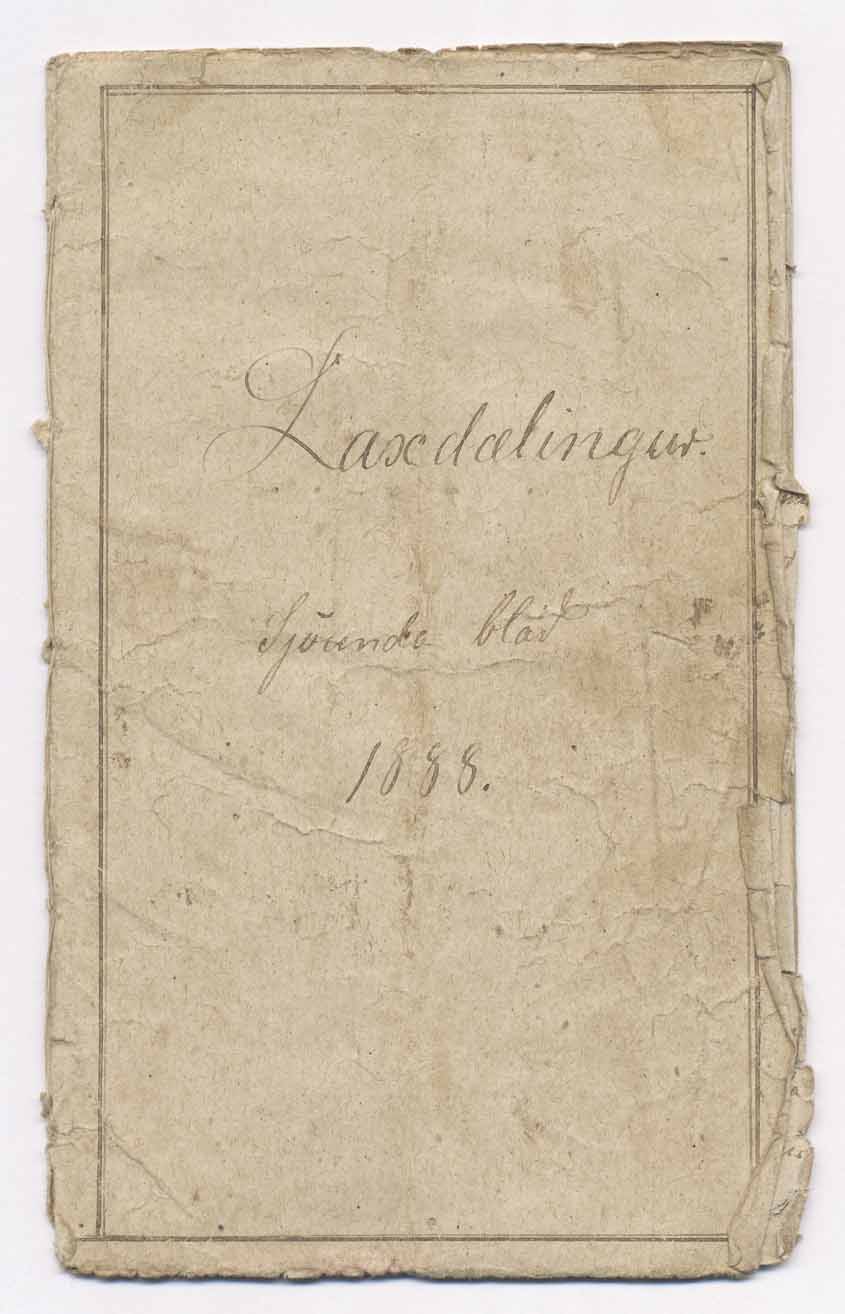 Laxdælingur.
Sjöunda blað
1888.